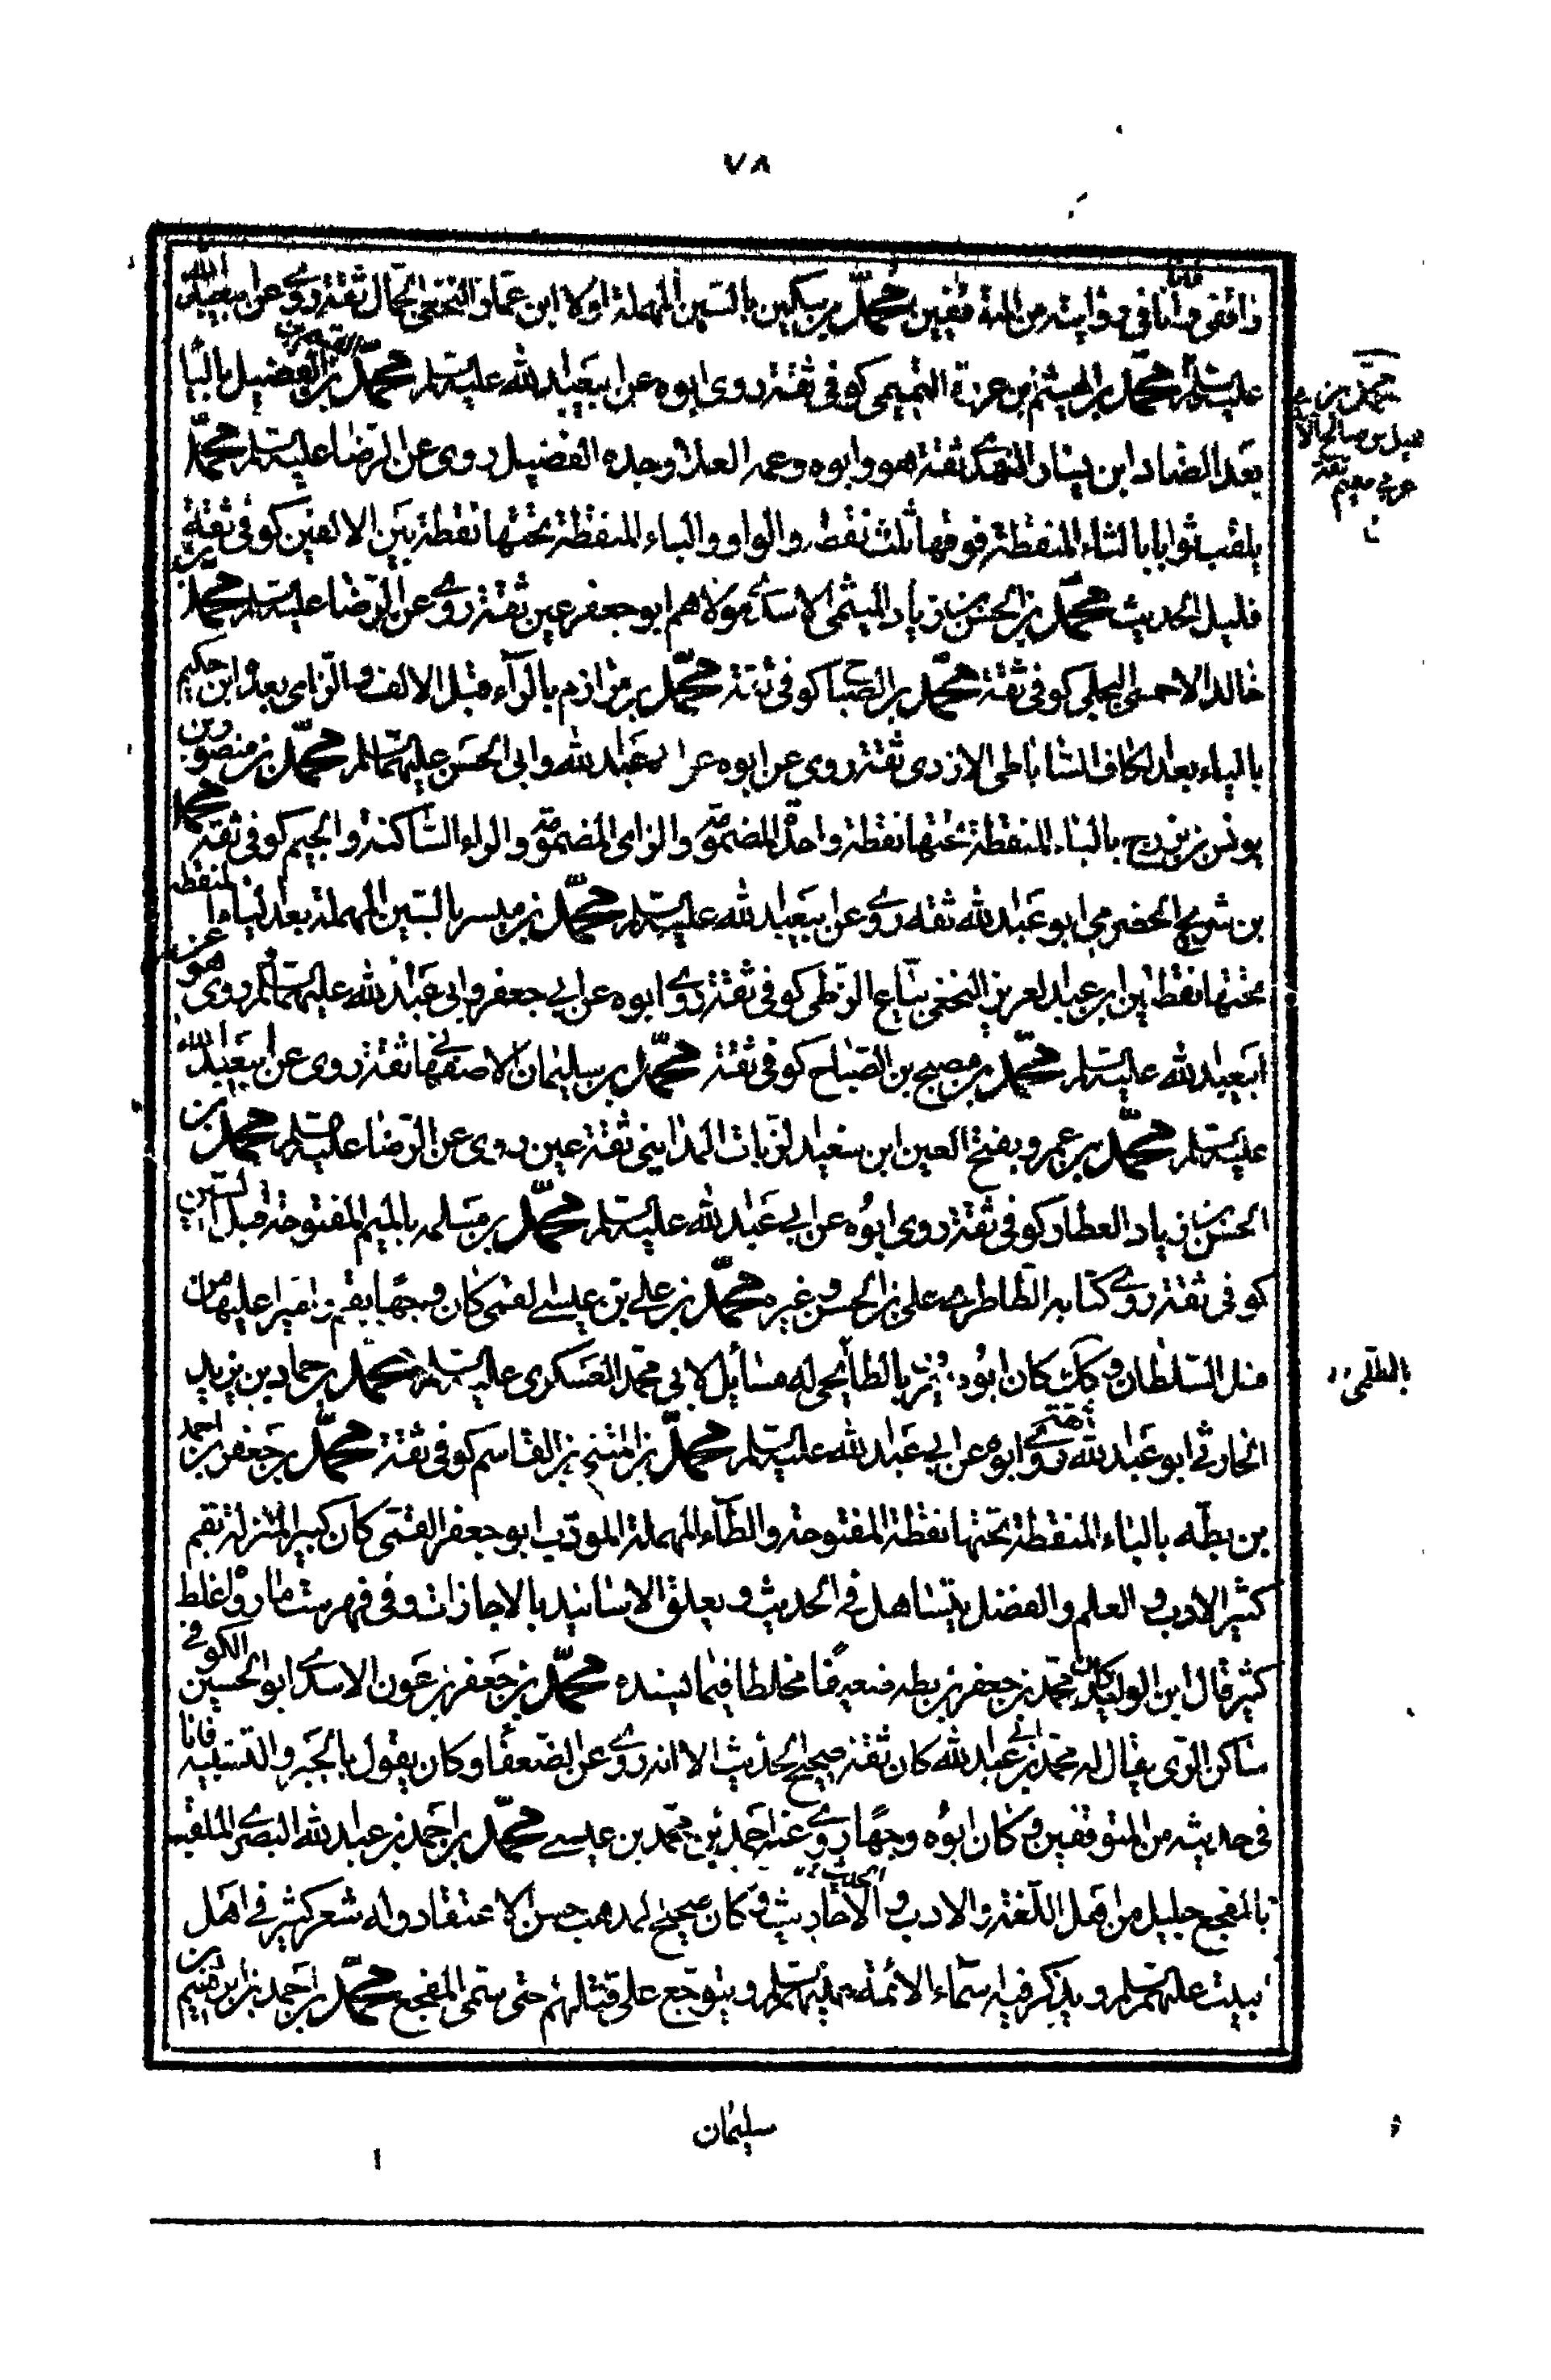 ٧٨
فانا
محمد بن سكين بالسين المهملة اولا ابن عمار النخعى الجمال ثقة روى عن ابيعبد الله
عليه السلم محمد بن الهيثم بن عروة التميمى كوفى ثقة روى ابوه عن ابيعبد الله عليه السلم محمد بن القسم بن الفضيل بالياء
بعد الضاد ابن يسار النهدى ثقة هو وابوه وعمه العلا وجده الفضيل روى عن الرضا عليه السلم محمد
يلقب ثوابا بالثاء المنقطة فوقها ثلث نقط والواو والباء المنقطة تحتها نقطة بين الالفين كوفى ثقة
قليل الحديث محمد بن الحسن بن زياد الميثمى الاسدى مولاهم ابو جعفر عين ثقة روى عن الرضا عليه السلم محمد بن
خالد الاحمسى البجلى كوفى ثقة محمد بن الصباح كوفى ثقة محمد بن مرازم بالراء قبل الالف والزاى بعدها ابن حكيم
بالياء بعد الكاف الساباطى الازدى ثقة روى عن ابوه عن ابى عبد الله وابى الحسن عليهما السلم محمد بن منصور بن
يونس بزرج بالباء المنقطة تحتها نقطة واحدة المضمومة والزاى المضمومة والراء الساكنة والجيم كوفى ثقة محمد
بن شريح الحضرمى ابو عبد الله ثقه روى عن ابيعبد الله عليه السلم محمد بن ميسر بالسين المهملة بعد الياء المنقطة
تحتها نقطتين ابن عبد العزيز النخعى بياع الزطى كوفى ثقة روى ابوه عن ابى جعفر وابى عبد الله عليهما السلم وروى هو عن
ابيعبد الله عليه السلم محمد بن مصبح بن الصباح كوفى ثقة محمد بن سليمان الاصفهانى ثقة روى عن ابيعبد الله
عليه السلم محمد بن عمرو بفتح العين ابن سعيد الزيات المداينى ثقة عين روى عن الرضا عليه السلم محمد بن
الحسن بن زياد العطار كوفى ثقة روى ابوه عن ابى عبد الله عليه السلم محمد بن مسلمه بالميم المفتوحة قبل السين
كوفى ثقة روى كتابه الطاطرى على بن الحسن وغيره محمد بن على بن عيسى القمى كان وجها بقم واميرا عليها من
قبل السلطان وكك كان ابوه يعرف بالطلحى له مسايل لابى محمد العسكرى عليه السلم محمد بن حماد بن يزيد
الحارثى ابو عبد الله ثقة روى ابوه عن ابى عبد الله عليه السلم محمد بن المثنى بن القاسم كوفى ثقة محمد بن جعفر بن احمد
بن بطه بالباء المنقطة تحتها نقطة المفتوحة والطاء المهملة المودب ابو جعفر القمى كان كبير المنزلة بقم
كثير الادب والعلم والفضل يتساهل فى الحديث ويعلق الاسانيد بالاجازات وفى فهرست ما رواه غلط
كثير قال ابن الوليد كان محمد بن جعفر بن بطه ضعيفا مخلطا فيما يسنده محمد بن جعفر بن عون الاسدى ابو الحسين الكوفى
ساكن الرى يقال له محمد بن ابى عبد الله كان ثقة صحيح الحديث الا انه روى عن الضعفا وكان يقول بالجبر والتشبيه فانا
فى حديثه من المتوقفين وكان ابوه وجها روى عنه احمد بن محمد بن عيسى محمد بن احمد بن عبد الله البصرى الملقب
بالمفجع جليل من اهل اللغة والادب والاحاديث وكان صحيح المذهب حسن الاعتقاد وله شعر كثير فى اهل
البيت عليهم السلم ويذكر فيه اسماء الائمة عليهم السلم ويتوجع على قتلهم حتى سمى المفجع محمد بن احمد بن ابراهيم بن
محمد بن
بالطلحى
سليمان